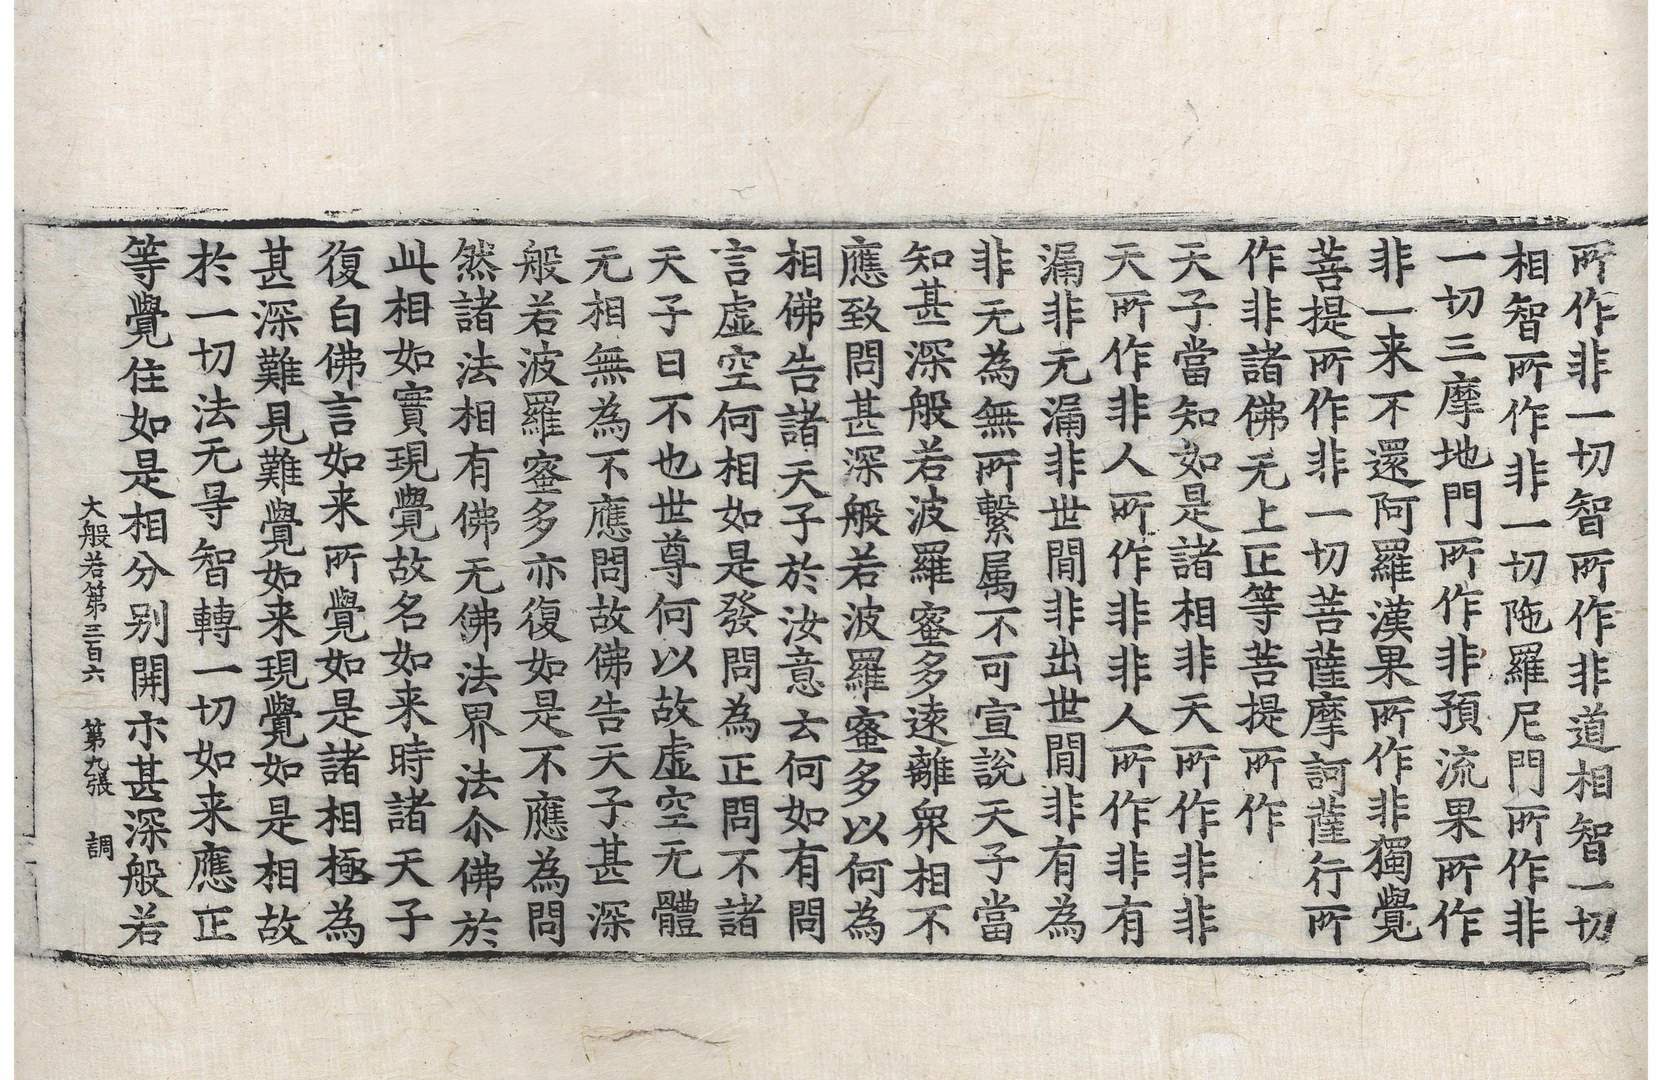 所作非一切智所作非道相智一切
相智所作非一切陁羅尼門所作非
一切三摩地門所作非預流果所作
非一来不還阿羅漢果所作非獨覺
菩提所作非一切菩薩摩訶薩行所
作非諸佛无上正等菩提所作
天子當知如是諸相非天所作非非
天所作非人所作非非人所作非有
漏非无漏非世間非出世間非有為
非无為無所繫属不可宣說天子當
知甚深般若波羅蜜多遠離衆相不
應致問甚深般若波羅蜜多以何為
相佛告諸天子於汝意云何如有問
言虛空何相如是發問為正問不諸
天子曰不也世尊何以故虛空无體
无相無為不應問故佛告天子甚深
般若波羅蜜多亦復如是不應為問
然諸法相有佛无佛法界法尒佛於
此相如實現覺故名如来時諸天子
復白佛言如来所覺如是諸相極為
甚深難見難覺如来現覺如是相故
於一切法无㝵智轉一切如来應正
等覺住如是相分别開示甚深般若
大般若第三百六 第九張 調